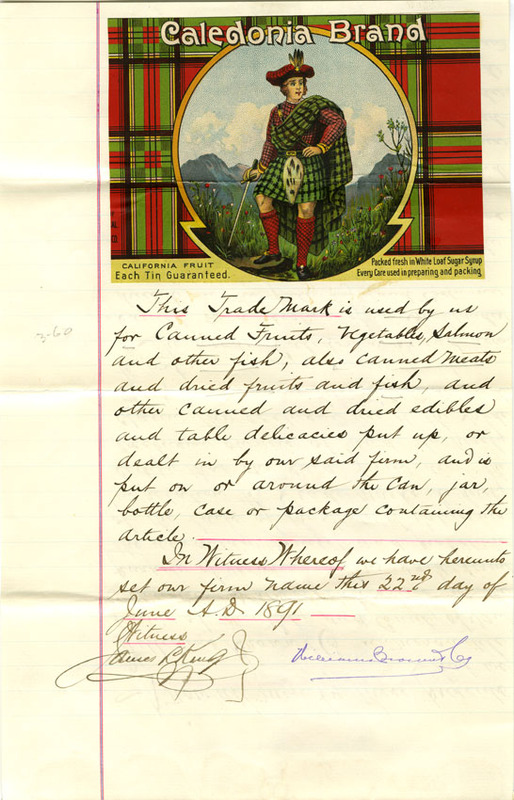 Caledonia Brand
CALIFORNIA FRUIT
Each Tin Guaranteed.
Packed fresh in White Loaf Sugar Syrup
Every Care used in preparing and packing
This Trade Mark is used by us
for Canned Fruits, Vegetables, Salmon
and other fish, also canned meats
and dried fruits and fish, and
other canned and dried edibles
and table delicacies put up, or
dealt in by our said firm, and is
put on or around the can, jar,
bottle, case or package containing the
article.
In Witness Whereof we have hereunto
set our firm name this 22nd day of
June A.D. 1891
Witness
James L. King
Williams Brown & Co